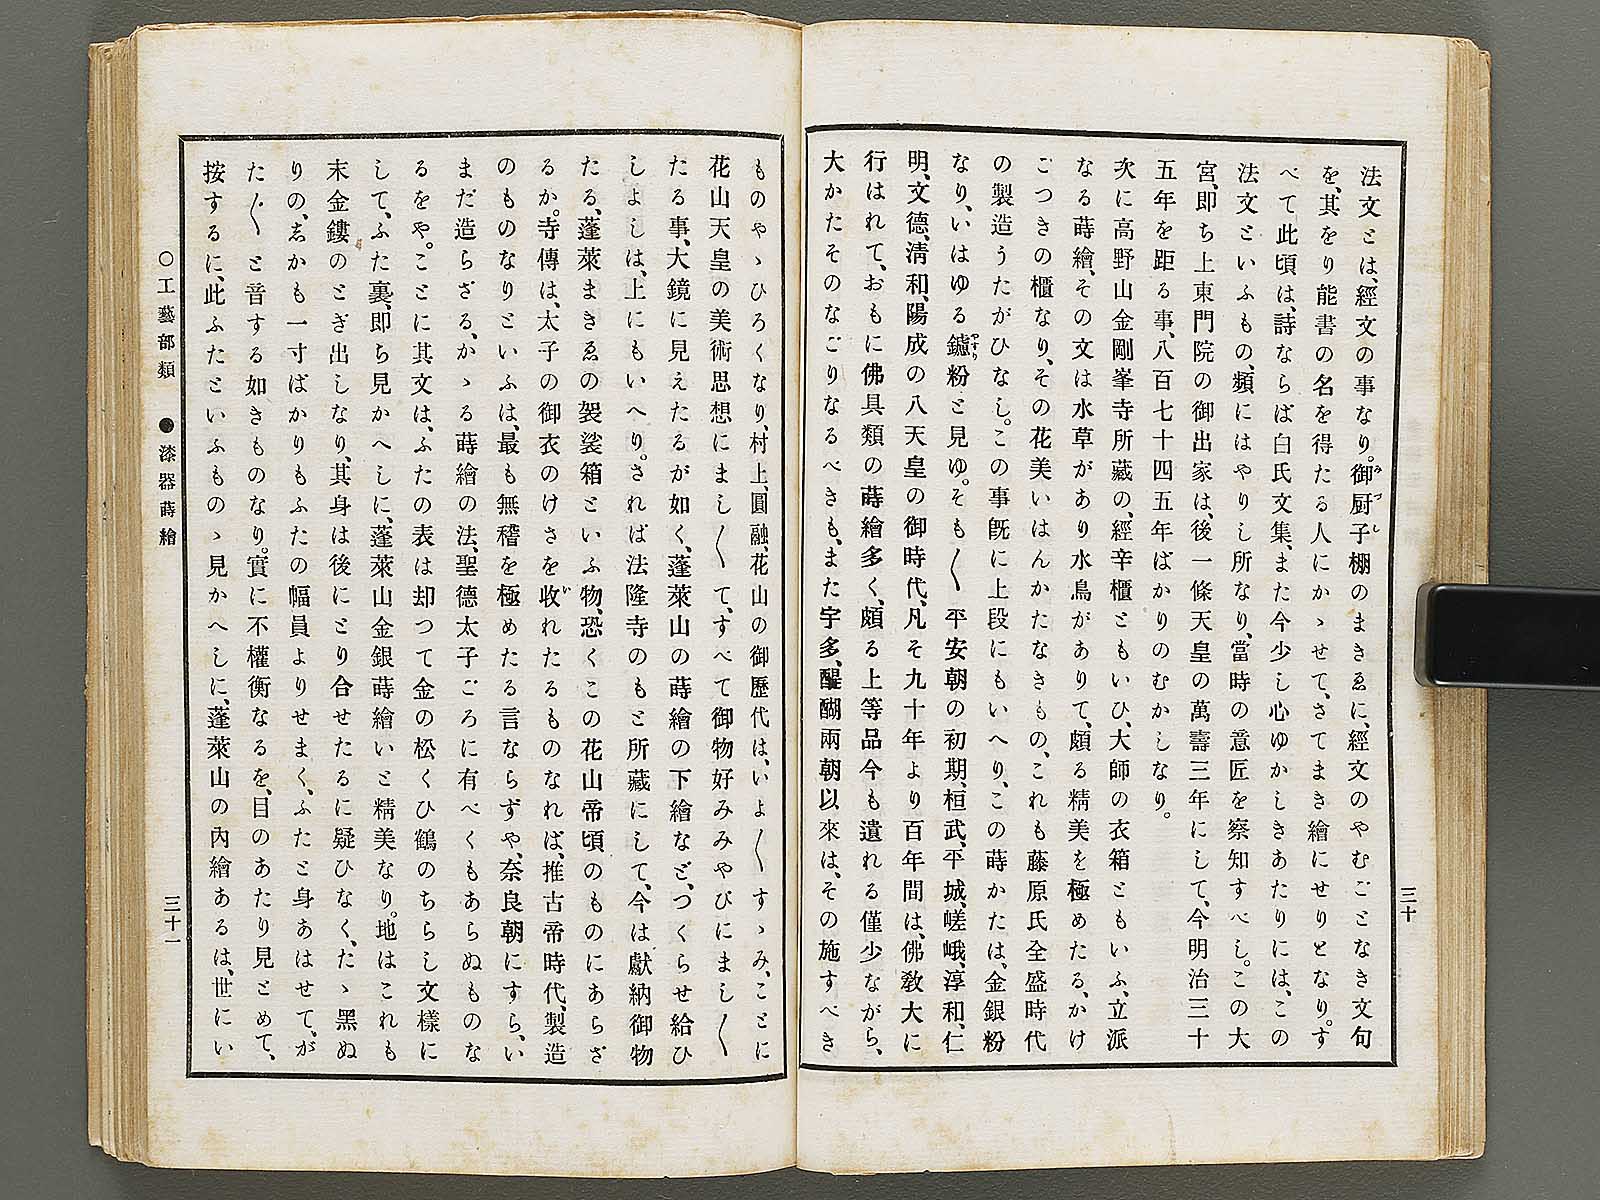 法文とは、經文の事なり。御厨子棚のまきゑに、經文のやむごとなき文句
を、其をり能書の名を得たる人にかゝせて、さてまき繪にせりとなり。す
べて此頃は、詩ならば白氏文集、また今少し心ゆかしきあたりには、この
法文といふもの、頻にはやりし所なり、當時の意匠を察知すべし。この大
宮、即ち上東門院の御出家は、後一條天皇の萬壽三年にして、今明治三十
五年を距る事、八百七十四五年ばかりのむかしなり。
次に高野山金剛峯寺所藏の、經辛櫃ともいひ、大師の衣箱ともいふ、立派
なる蒔繪、その文は水草があり水鳥がありて、頗る精美を極めたる、かけ
ごつきの櫃なり、その花美いはんかたなきもの、これも藤原氏全盛時代
の製造うたがひなし。この事既に上段にもいへり、この蒔かたは、金銀粉
なり、いはゆる鑢粉と見ゆ。そも〱平安朝の初期、桓武、平城、嵯峨、淳和、仁
やすり
明、文德、淸和、陽成の八天皇の御時代、凡そ九十年より百年間は、佛敎大に
行はれて、おもに佛具類の蒔繪多く、頗る上等品今も遺れる僅少ながら、
大かたそのなごりなるべきも、また宇多、醍醐兩朝以來は、その施すべき
三十
ものやゝひろくなり、村上、圓融、花山の御歷代は、いよ〱すゝみ、ことに
花山天皇の美術思想にまし〱て、すべて御物好みみやびにまし〱
たる事、大鏡に見えたるが如く、蓬萊山の蒔繪の下繪など、つくらせ給ひ
しよしは、上にもいへり。されば法隆寺のもと所藏にして、今は獻納御物
たる、蓬萊まきゑの袈裟箱といふ物、恐くこの花山帝頃のものにあらざ
るか。寺傳は、太子の御衣のけさを收れたるものなれば、推古帝時代、製造
のものなりといふは、最も無稽を極めたる言ならずや、奈良朝にすら、い
まだ造らざる、かゝる蒔繪の法、聖德太子ごろに有べくもあらぬものな
るをや。ことに其文は、ふたの表は却つて金の松くひ鶴のちらし文樣に
して、ふた裏、即ち見かへしに、蓬萊山金銀蒔繪いと精美なり。地はこれも
末金鏤のとぎ出しなり、其身は後にとり合せたるに疑ひなく、たゝ黑ぬ
りの、志かも一寸ばかりもふたの幅員よりせまく、ふたと身あはせて、が
た〱と音する如きものなり。實に不權衡なるを、目のあたり見とめて、
按するに、此ふたといふものゝ見かへしに、蓬萊山の內繪あるは、世にい
○工藝部類　●漆器蒔繪
三十一